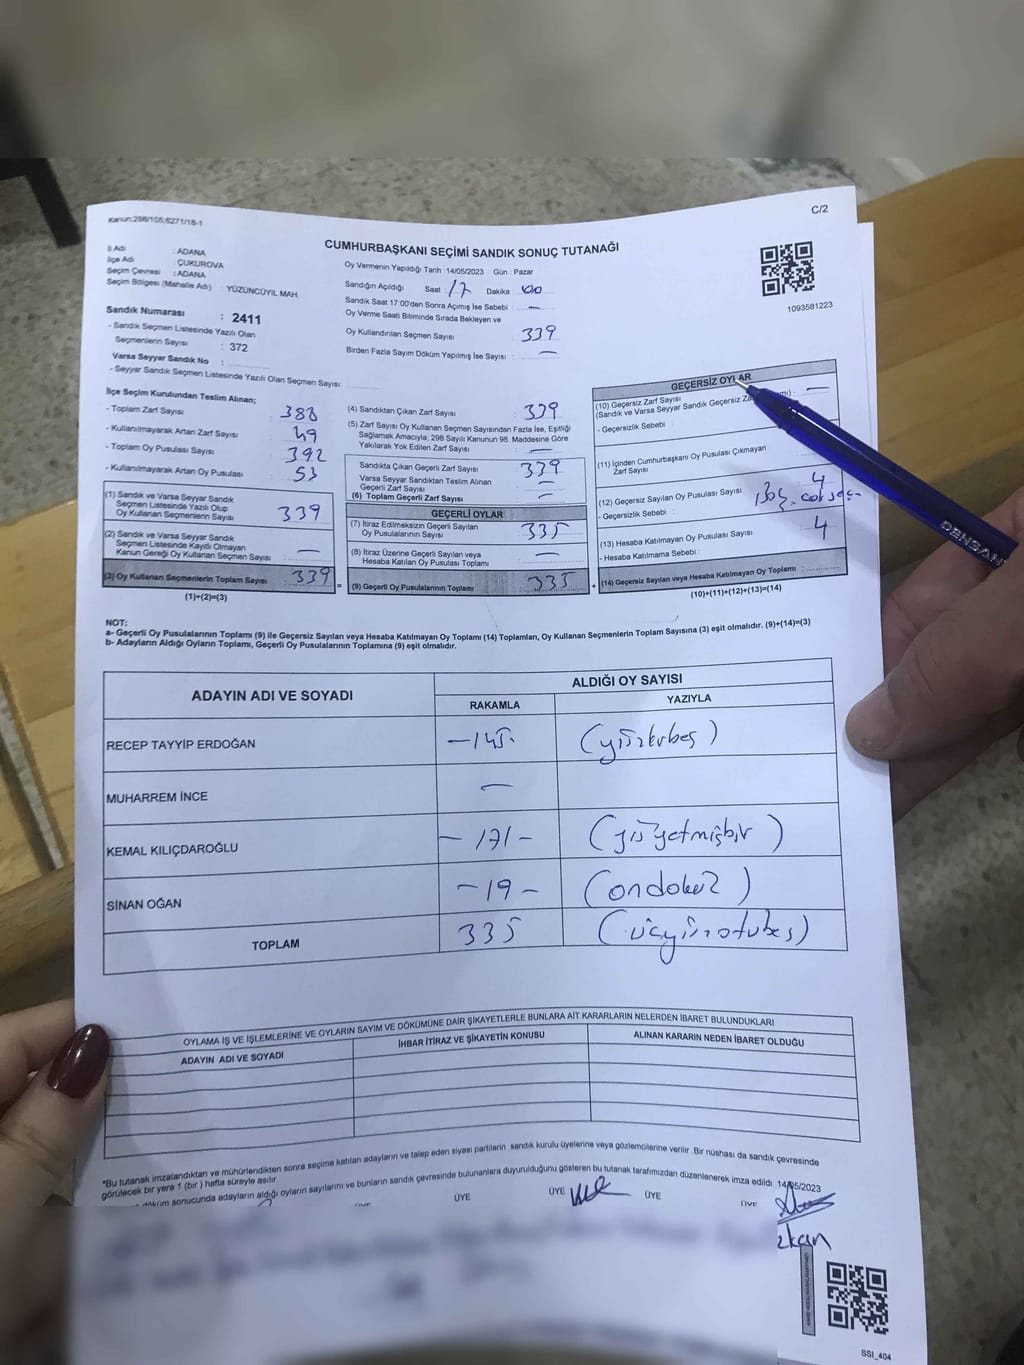 Kanun:298/105;6271/18-1
C/2
CUMHURBAŞKANI SEÇİMİ SANDIK SONUÇ TUTANAĞI
İl Adı : ADANA
İlçe Adı : ÇUKUROVA
Seçim Çevresi : ADANA
Seçim Bölgesi (Mahalle Adı) YÜZÜNCÜYIL MAH.
Sandık Numarası : 2411
- Sandık Seçmen Listesinde Yazılı Olan
Seçmenlerin Sayısı : 372
Varsa Seyyar Sandık No :
- Seyyar Sandık Seçmen Listesinde Yazılı Olan Seçmen Sayısı:
Oy Vermenin Yapıldığı Tarih :14/05/2023 Gün : Pazar
Sandığın Açıldığı Saat : 17 Dakika : 00
Sandık Saat 17:00'den Sonra Açımış İse Sebebi : —
Oy Verme Saati Bitiminde Sırada Bekleyen ve
Oy Kullandırılan Seçmen Sayısı : 339
Birden Fazla Sayım Döküm Yapılmış İse Sayısı : —
1093581223
İlçe Seçim Kurulundan Teslim Alınan;
- Toplam Zarf Sayısı : 388
- Kullanılmayarak Artan Zarf Sayısı : 49
- Toplam Oy Pusulası Sayısı : 392
- Kullanılmayarak Artan Oy Pusulası : 53
(1) Sandık ve Varsa Seyyar Sandık
Seçmen Listesinde Yazılı Olup
Oy Kullanan Seçmenlerin Sayısı : 339
(2) Sandık ve Varsa Seyyar Sandık
Seçmen Listesinde Kayıtlı Olmayan
Kanun Gereği Oy Kullanan Seçmen Sayısı : —
(3) Oy Kullanan Seçmenlerin Toplam Sayısı : 339
(1)+(2)=(3)
(4) Sandıktan Çıkan Zarf Sayısı : 339
(5) Zarf Sayısı Oy Kullanan Seçmen Sayısından Fazla İse, Eşitliği
Sağlamak Amacıyla, 298 Sayılı Kanunun 98. Maddesine Göre
Yakılarak Yok Edilen Zarf Sayısı : —
Sandıkta Çıkan Geçerli Zarf Sayısı : 339
Varsa Seyyar Sandıktan Teslim Alınan
Geçerli Zarf Sayısı : —
(6) Toplam Geçerli Zarf Sayısı : —
GEÇERLİ OYLAR
(7) İtiraz Edilmeksizin Geçerli Sayılan
Oy Pusulalarının Sayısı : 335
(8) İtiraz Üzerine Geçerli Sayılan veya
Hesaba Katılan Oy Pusulası Toplamı : —
(9) Geçerli Oy Pusulalarının Toplamı : 335
GEÇERSİZ OYLAR
(10) Geçersiz Zarf Sayısı
(Sandık ve Varsa Seyyar Sandık Geçersiz : —
- Geçersizlik Sebebi :
(11) İçinden Cumhurbaşkanı Oy Pusulası Çıkmayan
Zarf Sayısı
(12) Geçersiz Sayılan Oy Pusulası Sayısı : 4
- Geçersizlik Sebebi :
(13) Hesaba Katılmayan Oy Pusulası Sayısı : 4
- Hesaba Katılmama Sebebi :
(14) Geçersiz Sayılan veya Hesaba Katılmayan Oy Toplamı :
(10)+(11)+(12)+(13)=(14)
NOT:
a- Geçerli Oy Pusulalarının Toplamı (9) ile Geçersiz Sayılan veya Hesaba Katılmayan Oy Toplamı (14) Toplamları, Oy Kullanan Seçmenlerin Toplam Sayısına (3) eşit olmalıdır. (9)+(14)=(3)
b- Adayların Aldığı Oyların Toplamı, Geçerli Oy Pusulalarının Toplamına (9) eşit olmalıdır.
ADAYIN ADI VE SOYADI
ALDIĞI OY SAYISI
RAKAMLA YAZIYLA
RECEP TAYYİP ERDOĞAN —145. (yüzkırbeş)
MUHARREM İNCE —
KEMAL KILIÇDAROĞLU —171— (yüzyetmişbir)
SİNAN OĞAN —19— (ondokuz)
TOPLAM 335 (üçyüzotuzbeş)
OYLAMA İŞ VE İŞLEMLERİNE VE OYLARIN SAYIM VE DÖKÜMÜNE DAİR ŞİKAYETLERLE BUNLARA AİT KARARLARIN NELERDEN İBARET BULUNDUKLARI
ADAYIN ADI VE SOYADI İHBAR İTİRAZ VE ŞİKAYETİN KONUSU ALINAN KARARIN NEDEN İBARET OLDUĞU
*Bu tutanak imzalandıktan ve mühürlendikten sonra seçime katılan adayların ve talep eden siyasi partilerin sandık kurulu üyelerine veya gözlemcilerine verilir .Bir nüshası da sandık çevresinde
görülecek bir yere 1 (bir ) hafta süreyle asılır.
döküm sonucunda adayların aldığı oyların sayılarını ve bunların sandık çevresinde bulunanlara duyurulduğunu gösteren bu tutanak tarafımızdan düzenlenerek imza edildi 14/05/2023
ÜYE ÜYE ÜYE ÜYE ÜYE
SSİ_404
DENSAN